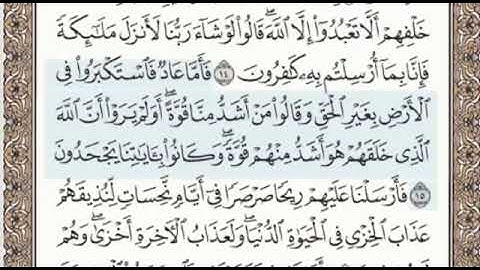 خَلْفِهِمْ أَلَّا تَعْبُدُوٓا۟ إِلَّا ٱللَّهَ ۖ قَالُوا۟ لَوْ شَآءَ رَبُّنَا لَأَنزَلَ مَلَـٰٓئِكَةً
فَإِنَّا بِمَآ أُرْسِلْتُم بِهِۦ كَـٰفِرُونَ ١٤ فَأَمَّا عَادٌ فَٱسْتَكْبَرُوا۟ فِى
ٱلْأَرْضِ بِغَيْرِ ٱلْحَقِّ وَقَالُوا۟ مَنْ أَشَدُّ مِنَّا قُوَّةً ۖ أَوَلَمْ يَرَوْا۟ أَنَّ ٱللَّهَ
ٱلَّذِى خَلَقَهُمْ هُوَ أَشَدُّ مِنْهُمْ قُوَّةً ۖ وَكَانُوا۟ بِـَٔايَـٰتِنَا يَجْحَدُونَ
١٥ فَأَرْسَلْنَا عَلَيْهِمْ رِيحًا صَرْصَرًا فِىٓ أَيَّامٍ نَّحِسَاتٍ لِّنُذِيقَهُمْ
عَذَابَ ٱلْخِزْىِ فِى ٱلْحَيَوٰةِ ٱلدُّنْيَا ۖ وَلَعَذَابُ ٱلْـَٔاخِرَةِ أَخْزَىٰ ۖ وَهُمْ